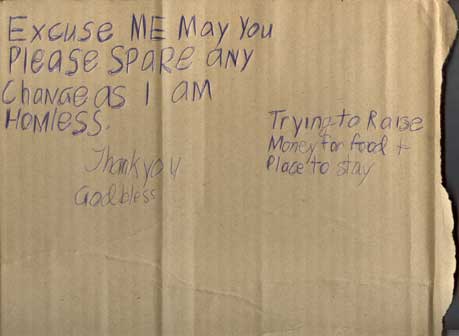 Excuse ME May You
Please SPARE any
Change as I am
Homless.
Thank you
God bless
Trying to Raise
Money for food +
Place to stay